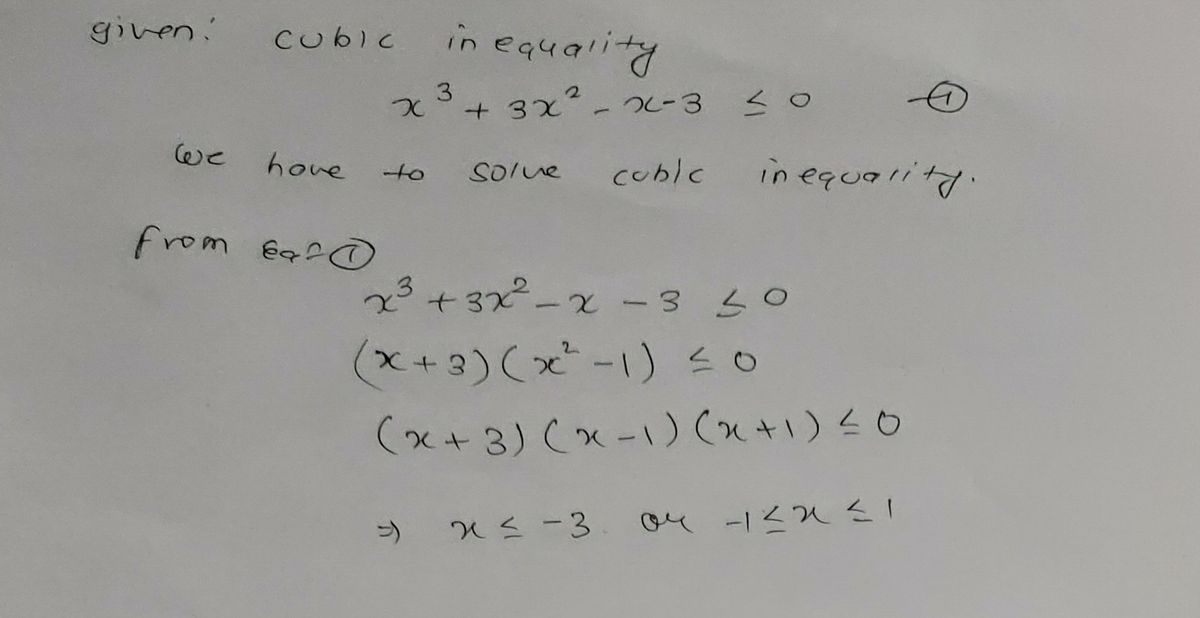 given: cubic inequality
x³ + 3x² - x - 3 ≤ 0 —①
We have to solve cubic inequality.
from Eqn ①
x³ + 3x² - x - 3 ≤ 0
(x+3)(x² - 1) ≤ 0
(x+3)(x-1)(x+1) ≤ 0
⇒ x ≤ -3 or -1 ≤ x ≤ 1